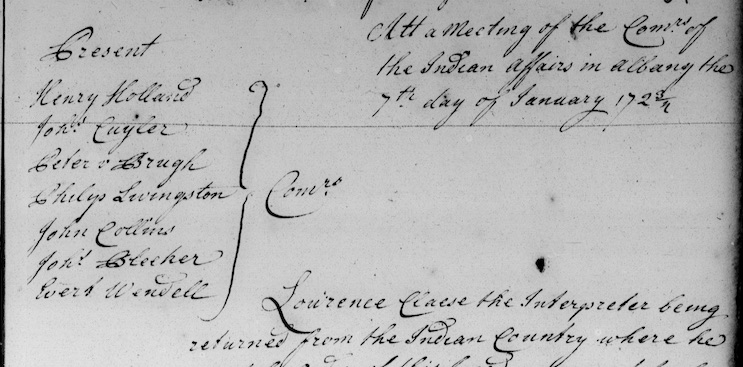 Present
Henry Holland
Joh.s Cuyler
Peter v Brugh
Philip Livingston
John Collins
Joh.s Bleeker
Evert Wendell
Com.rs
Att a Meeting of the Com.rs of
the Indian affairs in albany the
7th day of January 172 3/4
Lowrence Claese the Interpreter being
returned from the Indian Country where he